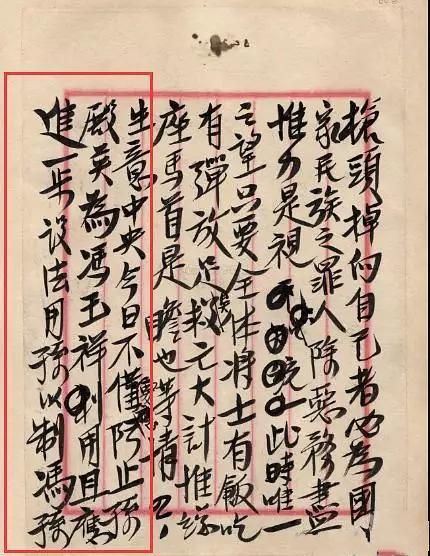 槍頭掉向自己者必為國
家民族之罪人除惡務盡
惟力是視 統一此時唯一
之望只要全体將士有飯吃
有彈放足救亡大計惟
座馬首是瞻也等情
生意中央今日不僅阻止孫
殿英為馮玉祥利用且應
進一步設法用孫以制馮孫